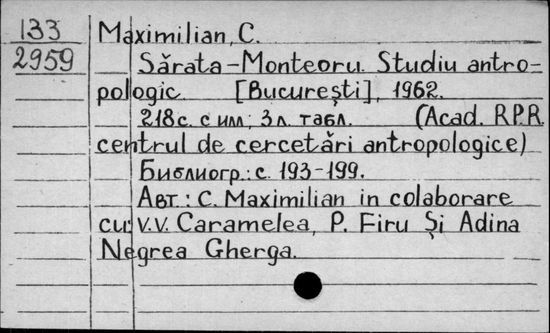 133
2959
Maximilian, C.
Sărata-Monteoru. Studiu antro-
pologic. [București], 1962.
218с. с илл; 3л. табл. (Acad. R.P.R.
centrul de cercetări antropologice)
Библиогр.: с. 193-199.
Авт.: C. Maximilian in colaborare
cu: V.V. Caramelea, P. Firu Și Adina
Negrea Gherga.